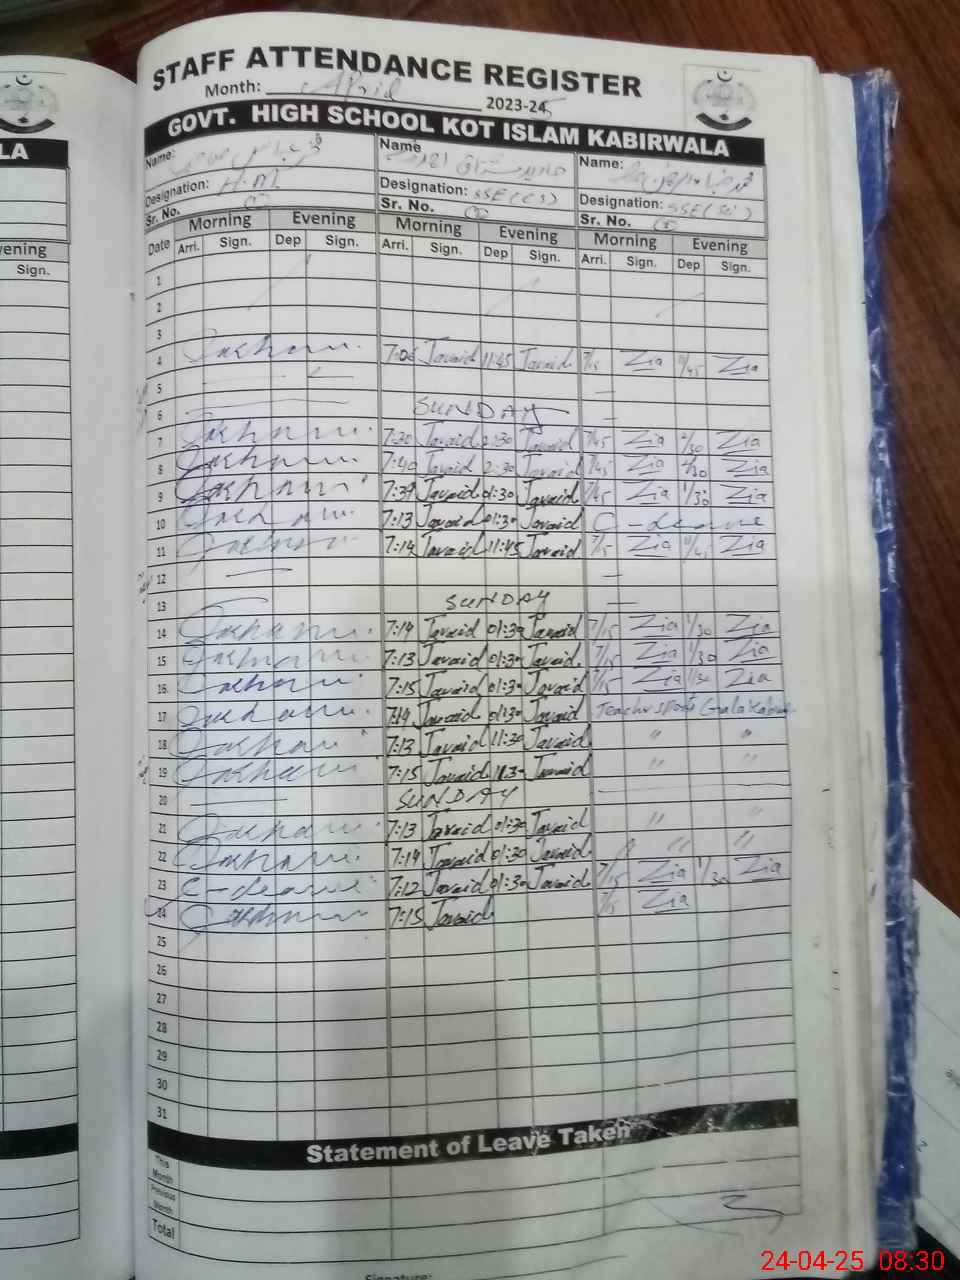 LA
Evening
Sign.
STAFF ATTENDANCE REGISTER
Month: April 2023-25
GOVT. HIGH SCHOOL KOT ISLAM KABIRWALA
Name: Name Name:
Designation: H.M Designation: SSE(CS) Designation: SSE(Sci)
Sr. No. Sr. No. Sr. No.
Date Morning Evening Morning Evening Morning Evening
Arri. Sign. Dep Sign. Arri. Sign. Dep Sign. Arri. Sign. Dep Sign.
1
2
3
4 7:06 Javaid 11:45 Javaid 7/15 Zia 11/45 Zia
5
6 SUNDAY
7 7:30 Javaid Javaid 7/45 Zia 1/30 Zia
8 7:40 Javaid Javaid 7/45 Zia 1/30 Zia
9 7:39 Javaid 01:30 Javaid 7/45 Zia 1/30 Zia
10 7:13 Javaid 01:30 Javaid C-leave
11 7:14 Javaid 11:45 Javaid 7/15 Zia 11/45 Zia
12
13 SUNDAY
14 7:14 Javaid 01:30 Javaid 7/15 Zia 1/30 Zia
15 7:13 Javaid 01:30 Javaid 7/15 Zia 1/30 Zia
16 7:15 Javaid 01:30 Javaid 7/15 Zia 1/30 Zia
17 7:14 Javaid 01:30 Javaid Teacher Sports Gala
18 7:13 Javaid 11:30 Javaid " "
19 7:15 Javaid 11:30 Javaid " "
20 SUNDAY
21 7:13 Javaid 01:30 Javaid " "
22 7:14 Javaid 01:30 Javaid " " "
23 C-leave 7:12 Javaid 01:30 Javaid 7/15 Zia 1/30 Zia
24 7:15 Javaid 7/15 Zia
25
26
27
28
29
30
31
Statement of Leave Taken
This Month
Previous Month
Total
Signature:
24-04-25 08:30